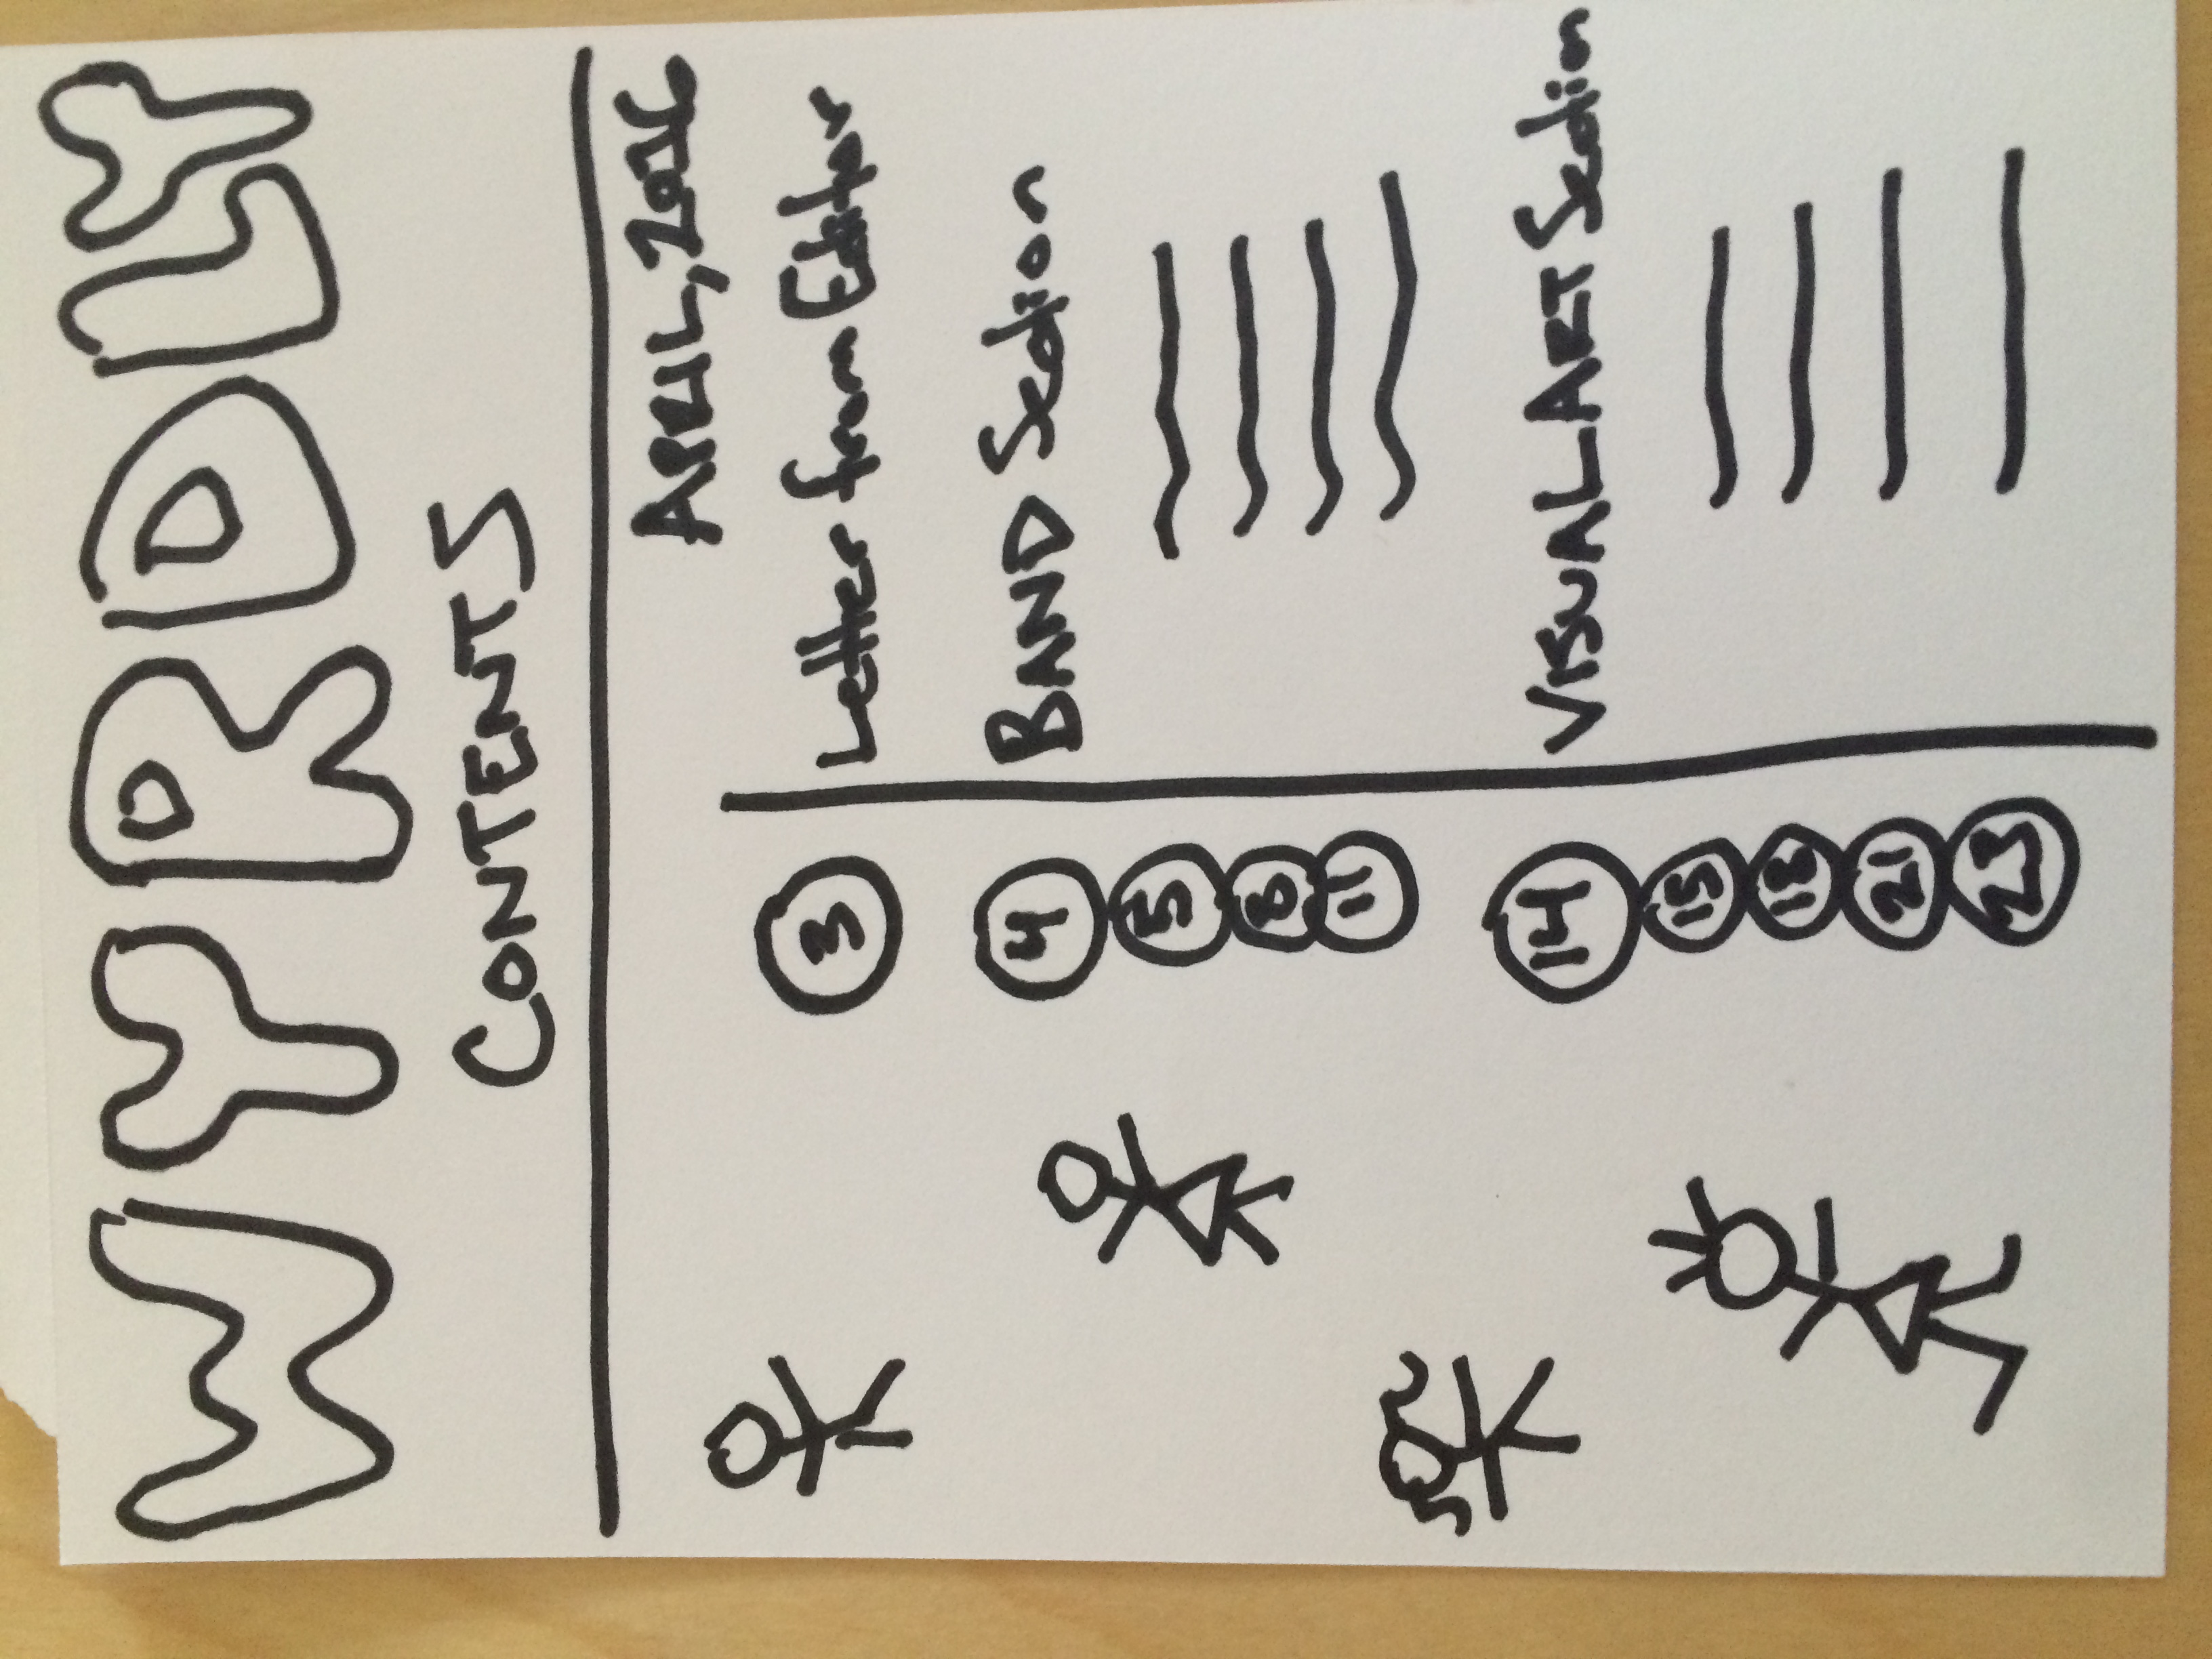 WYRDLY
CONTENTS
APRIL, 2016
3 Letter from Editor
4 BAND Section
5
8
11
14 VISUAL ART Section
15
18
21
23